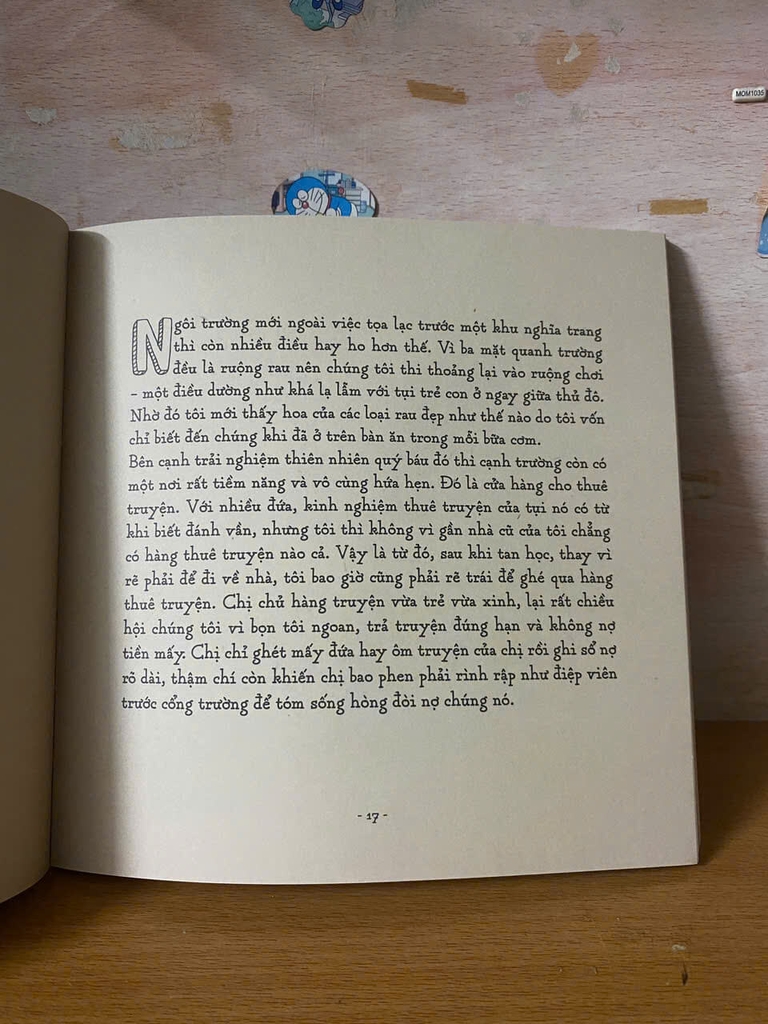 MOM1035
Ngôi trường mới ngoài việc tọa lạc trước một khu nghĩa trang
thì còn nhiều điều hay ho hơn thế. Vì ba mặt quanh trường
đều là ruộng rau nên chúng tôi thi thoảng lại vào ruộng chơi
- một điều dường như khá lạ lẫm với tụi trẻ con ở ngay giữa thủ đô.
Nhờ đó tôi mới thấy hoa của các loại rau đẹp như thế nào do tôi vốn
chỉ biết đến chúng khi đã ở trên bàn ăn trong mỗi bữa cơm.
Bên cạnh trải nghiệm thiên nhiên quý báu đó thì cạnh trường còn có
một nơi rất tiềm năng và vô cùng hứa hẹn. Đó là cửa hàng cho thuê
truyện. Với nhiều đứa, kinh nghiệm thuê truyện của tụi nó có từ
khi biết đánh vần, nhưng tôi thì không vì gần nhà cũ của tôi chẳng
có hàng thuê truyện nào cả. Vậy là từ đó, sau khi tan học, thay vì
rẽ phải để đi về nhà, tôi bao giờ cũng phải rẽ trái để ghé qua hàng
thuê truyện. Chị chủ hàng truyện vừa trẻ vừa xinh, lại rất chiều
hội chúng tôi vì bọn tôi ngoan, trả truyện đúng hạn và không nợ
tiền mấy. Chị chỉ ghét mấy đứa hay ôm truyện của chị rồi ghi sổ nợ
rõ dài, thậm chí còn khiến chị bao phen phải rình rập như điệp viên
trước cổng trường để tóm sống hòng đòi nợ chúng nó.
- 17 -